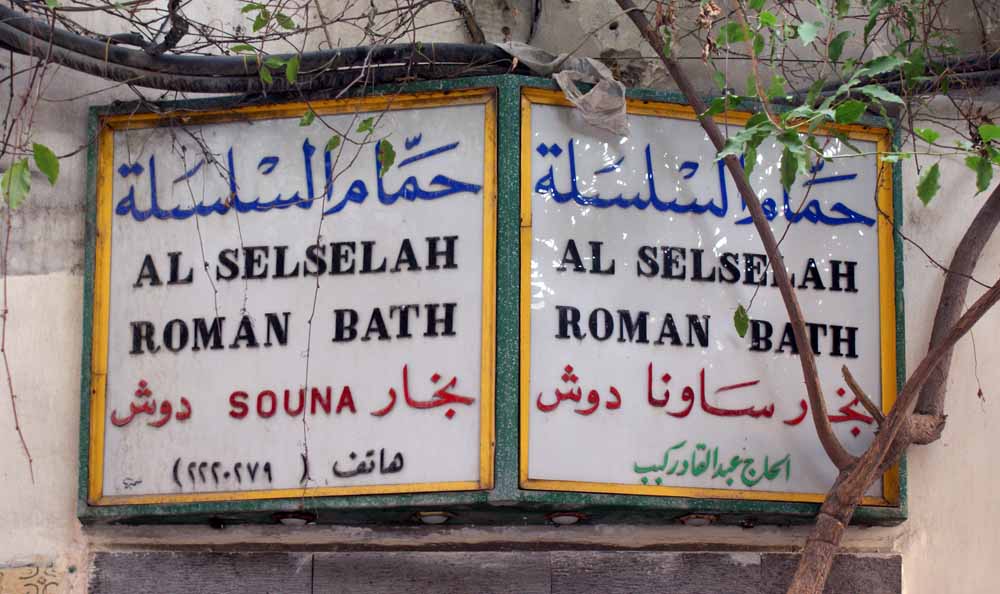 حمّام السلسلة
AL SELSELAH
ROMAN BATH
بخار SOUNA دوش
هاتف ( ٢٢٢٠٢٧٩ )
حمّام السلسلة
AL SELSELAH
ROMAN BATH
بخار ساونا دوش
الحاج عبدالقادر كبب